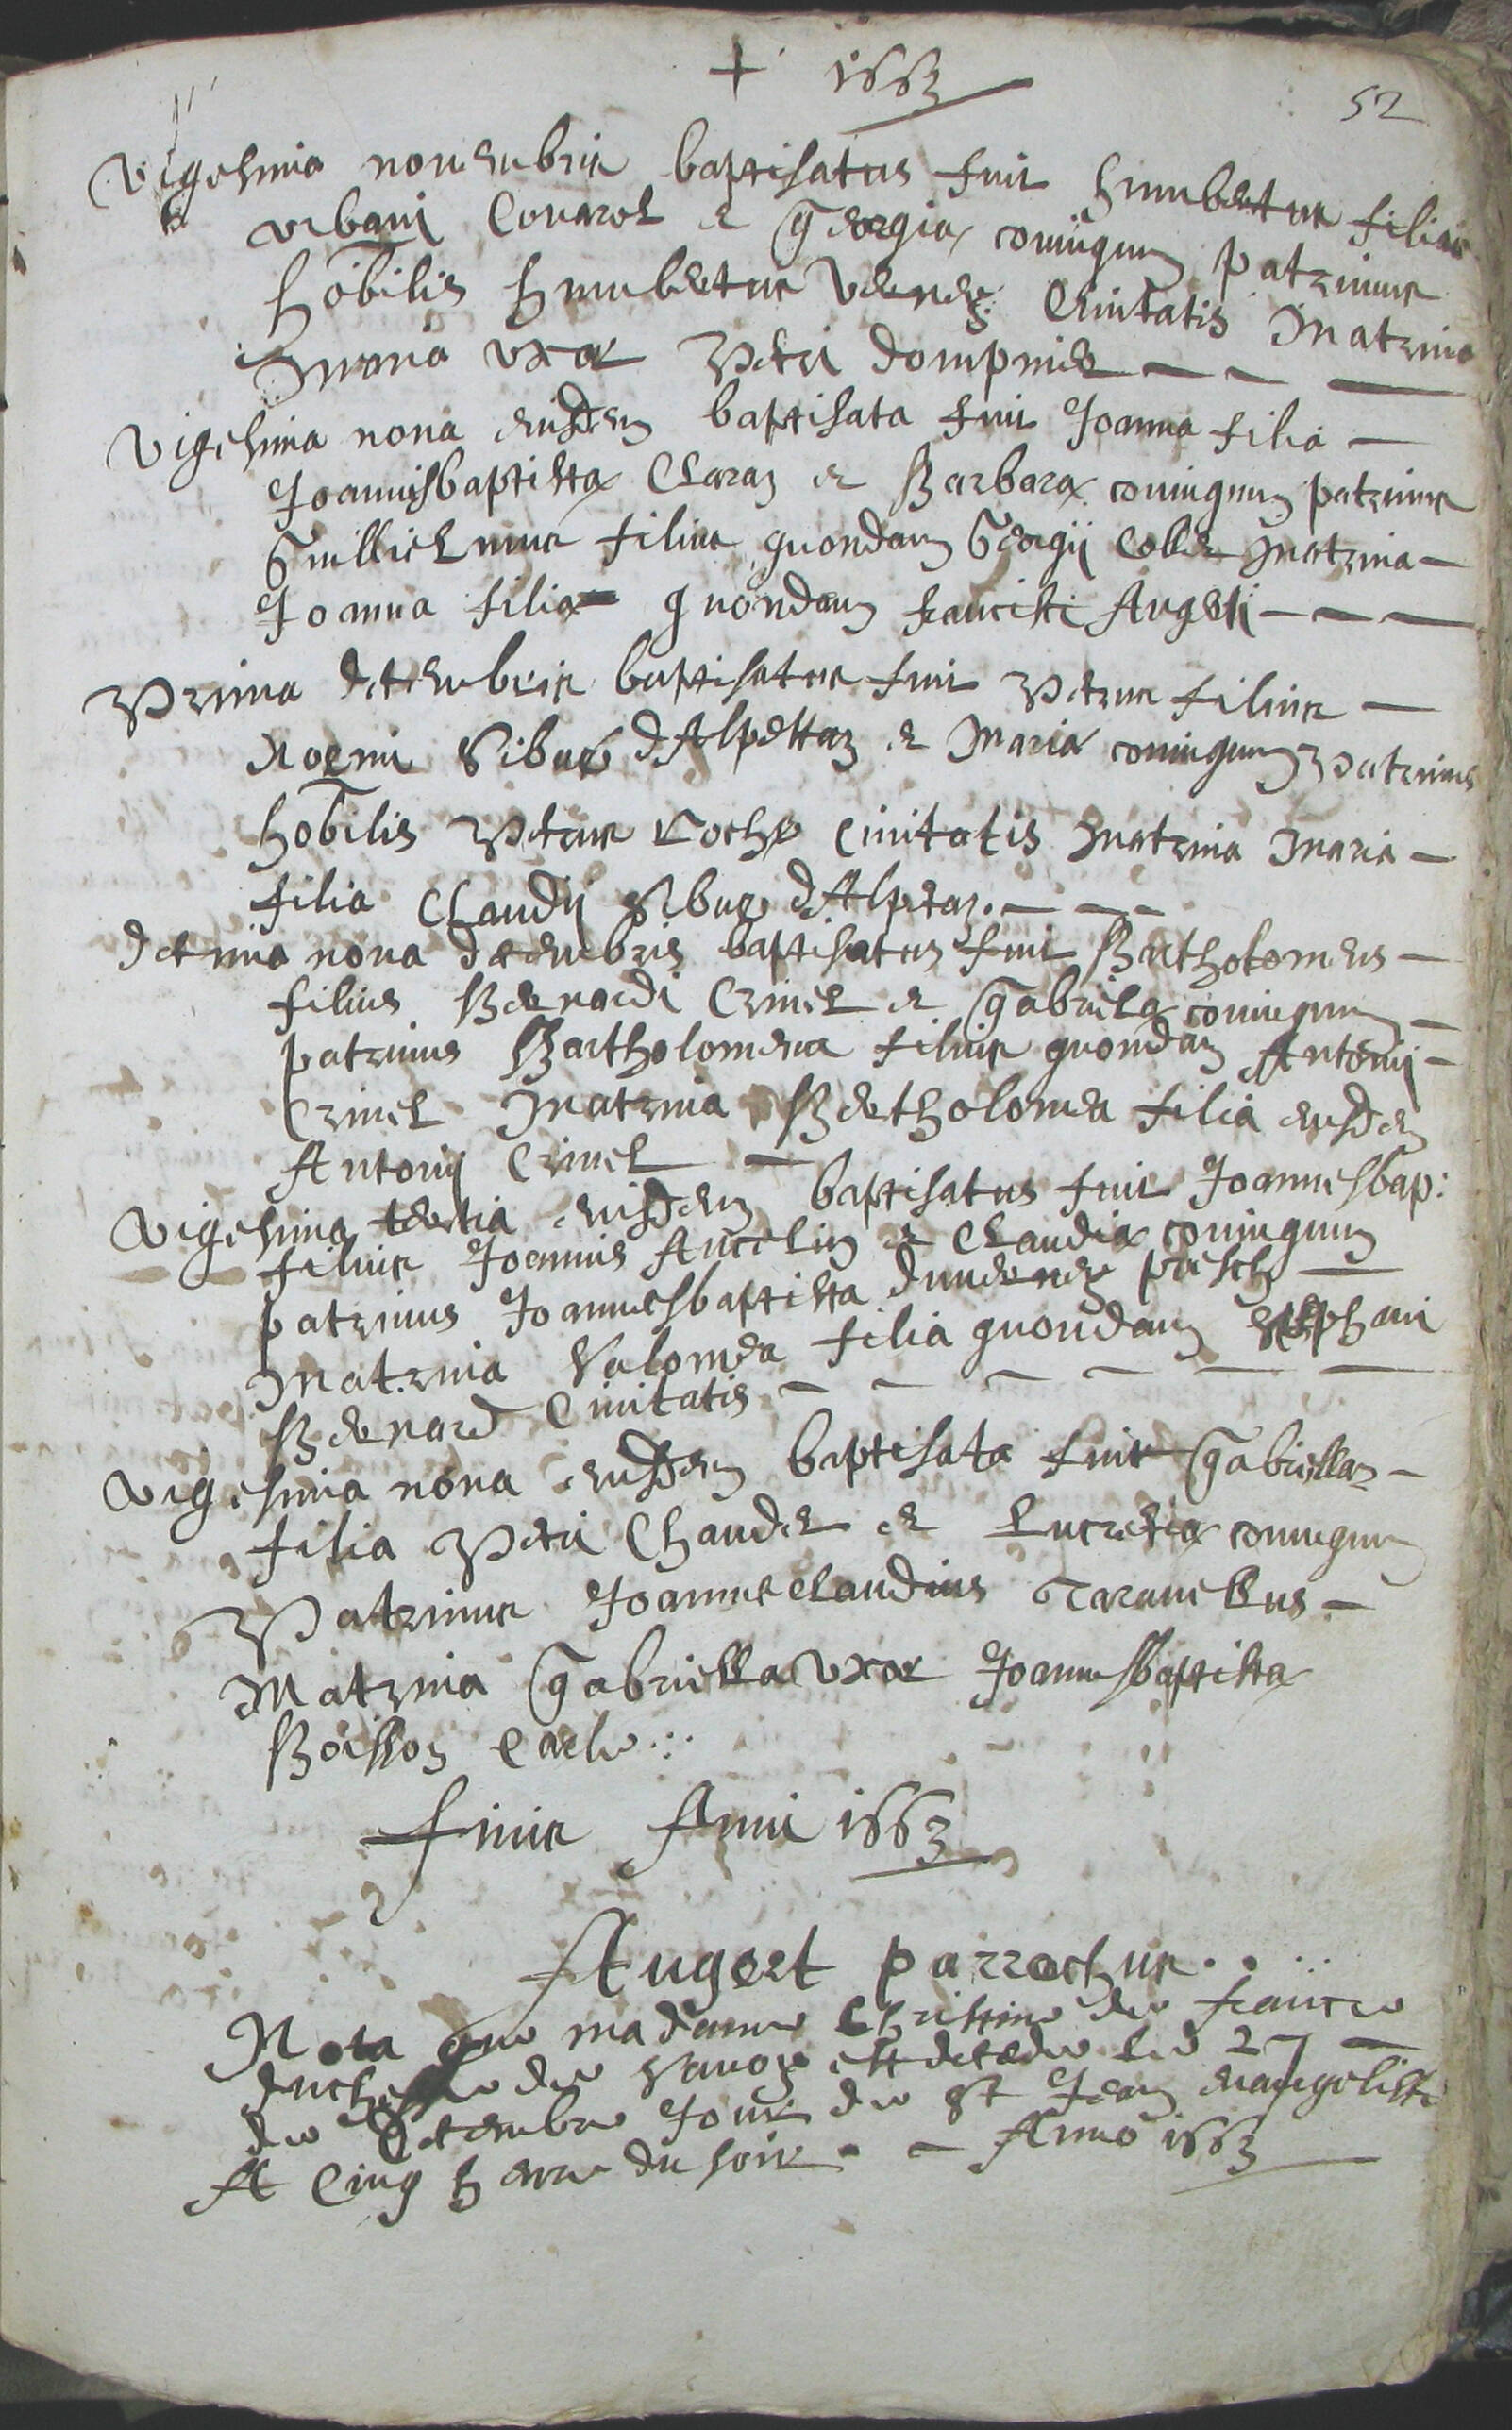 + 1663
52
Vigesima novembris baptisatus fuit humbertus filius
Urbani Couarel et Georgiæ coniugum patrinus
Nobilis humbertus Civitatis Matrina
uxor Petri dompnier
Vigesima nona eiusdem baptisata fuit Joanna filia
Joannisbaptistæ Claraz et Barbaræ coniugum patrinus
Guillielmus filius quondam Georgij Collet Matrina
Joanna filia quondam francisci Augert
Prima decembris baptisatus fuit Petrus filius
Noemi Sibue dAlpettaz et Mariæ coniugum Patrinus
Nobilis Petrus Civitatis Matrina Maria
filia Claudij Sibue dAlpetaz.
decima nona decembris baptisatus fuit Bartholomeus
filius Bernardi Crinel et Gabrielæ coniugum
patrinus Bartholomeus filius quondam Antonij
Crinel Matrina Bertholomea filia eiusdem
Antonij Crinel
Vigesima tertia eiusdem baptisatus fuit Joannesbap:
filius Joannis Ancelin et Claudiæ coniugum
patrinus Joannesbaptista
Matrina Salomea filia quondam Stephani
Bernard Civitatis
Vigesima nona eiusdem baptisata fuit Gabriella
filia Petri Chaudet et Lucretiæ coniugum
Patrinus Joannesclaudius Taravellus
Matrina Gabriella uxor Joannisbaptistæ
Boisson
finis Anni 1663
Augert parrochus
Nota que madame Christine de france
duchesse de Savoye est decedee le 27
de Decembre Jour de St Jean evangeliste
A Cinq heure du soir. Anno 1663